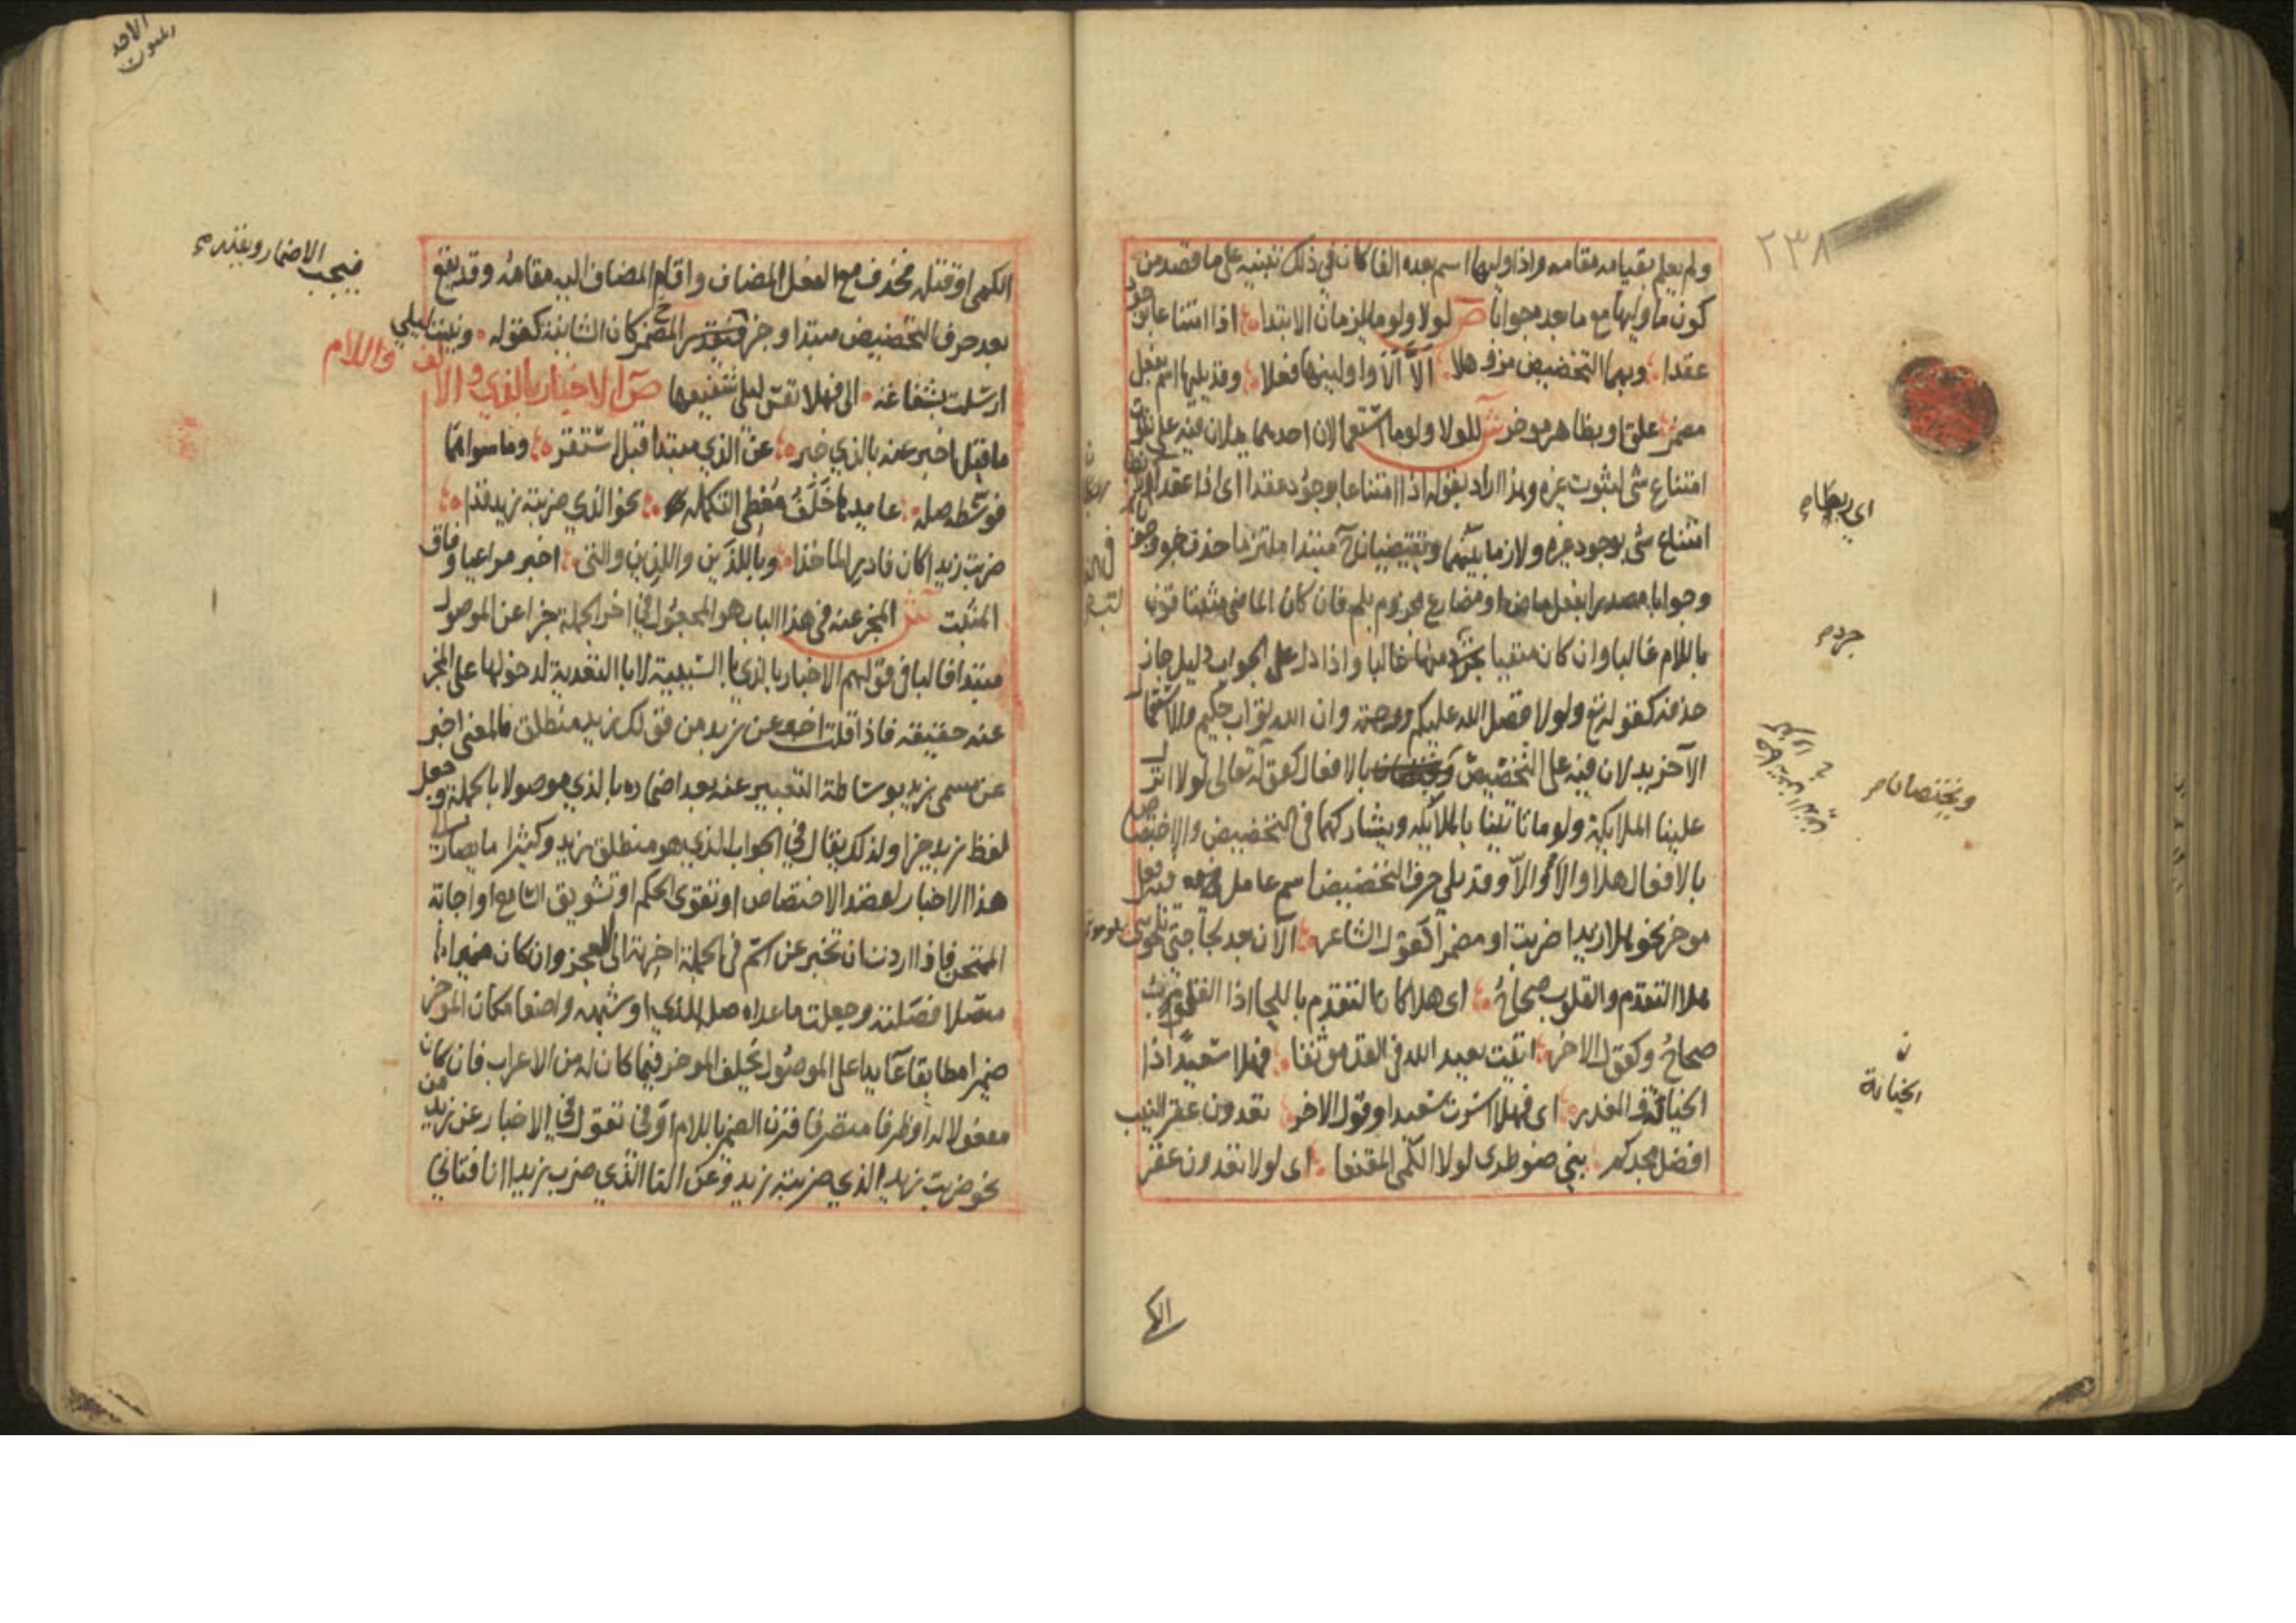 ٢٣٨
ولم يعلم بقيامه مقامه واذا وليها اسم بعده الفا كان في ذلك تنبيه على ما قصد من
كون ما وليها مع ما بعده جوابا ص لولا ولوما يلزمان الابتدا اذا امتناعا بوجود
عقدا وبهما التحضيض مز وهلا الّا الا واولينها فعلا وقد يليها اسم بفعل
مضمر علق او بظاهر موخر ش للولا ولوما استعمالان احدهما يدلان فيه على
امتناع شى لثبوت غيره وهذا اراد بقوله اذا امتناعا بوجود عقدا اى اذا عقدا
امتناع شى بوجود غيره ولازما بينهما ويقتضيان ح مبتدا ملتزما حذف خبره
وجوابا مصدرا بفعل ماض او مضارع مجزوم بلم فان كان الماضي مثبتا قرن
باللام غالبا وان كان منفيا تجرد منها غالبا واذا دل على الجواب دليل جاز
حذفه كقوله تع ولولا فضل الله عليكم ورحمته وان الله تواب حكيم والاستعمال
الآخر يدلان فيه على التحضيض بالافعال كقوله تعالى لولا انزل
علينا الملايكة ولوما تاتينا بالملآيكه ويشاركهما في التحضيض والاختصاص
بالافعال هلا والا والّا وقد يلي حرف التحضيض اسم عامل فيه فعل
موخر نحو هلا زيدا ضربت او مضمر كقول الشاعر الآن بعد لجاجتى تلحوننى
هلا التقدم والقلوب صحاحُ اى هلا كان التقدم باللجا اذا القلوب
صحاحُ وكقول الاخر اتيت بعبد الله في القد موثقا فهلا سعيدًا ذا
الخيانة والغدر اى فهلا اسرت سعيدا وقول الاخر تعدون عقر النيب
افضل مجدكم بني ضوطرى لولا الكمى المقنعا اى لولا تعدون عقر
الكمى
ويختصان
الخيانة
الكمى او قتله فحذف مع الفعل المضاف واقام المضاف اليه مقامه وقد يقع
بعد حرف التحضيض مبتدا وخبر المضمر كان الشانية كقوله ونبئت ليلى
فيجب الاضمار ويقدر
ارسلت بشفاعة الى فهلا نفس ليلى شفيعها ص الاخبار بالذي والالف واللام
ما قيل اخبر عنه بالذي خبر عن الذي مبتدا قبل استقر وما سواهما
فوسطه صله عايدها خلف معطى التكمله نحو الذي ضربته زيد فذا
ضربت زيدا كان فادر الماخذا وباللذَين والذين والتى اخبر مراعيا وفاق
المثبت ش المخبر عنه في هذا الباب هو المجعول في اخر الجملة خبرا عن الموصول
مبتدا فالبا في قولهم الاخبار بالذي با السببية لا با التعدية لدخولها على المخبر
عنه حقيقة فاذا قلت اخبر عن زيد من قولك زيد منطلق فالمعنى اخبر
عن مسمى زيد بوساطة التعبير عنه بعد اضماره بالذي موصولا بالجملة وجعل
لفظ زيد خبرا ولذلك يقال في الجواب الذي هو منطلق زيد وكثيرا ما يصار الى
هذا الاخبار لقصد الاختصاص او تقوى الحكم او تشويق السامع او اجابة
الممتحن فاذا اردت ان تخبر عن اسم في الجملة اخرته الى العجز وان كان ضميرا
متصلا فصلته وجعلت ما عداه صلة للذي او شبهه واضعا مكان الموخر
ضميرا مطابقا عآيدا على الموصول يخلف الموخر فيما كان له من الاعراب فان كان
مفعولا له او ظرفا متصرفا قرن الضمير باللام او في تقول في الاخبار عن زيد من
نحو ضربت زيدا الذي ضربته زيد وعن التا الذي ضرب زيدا انا فتاتي